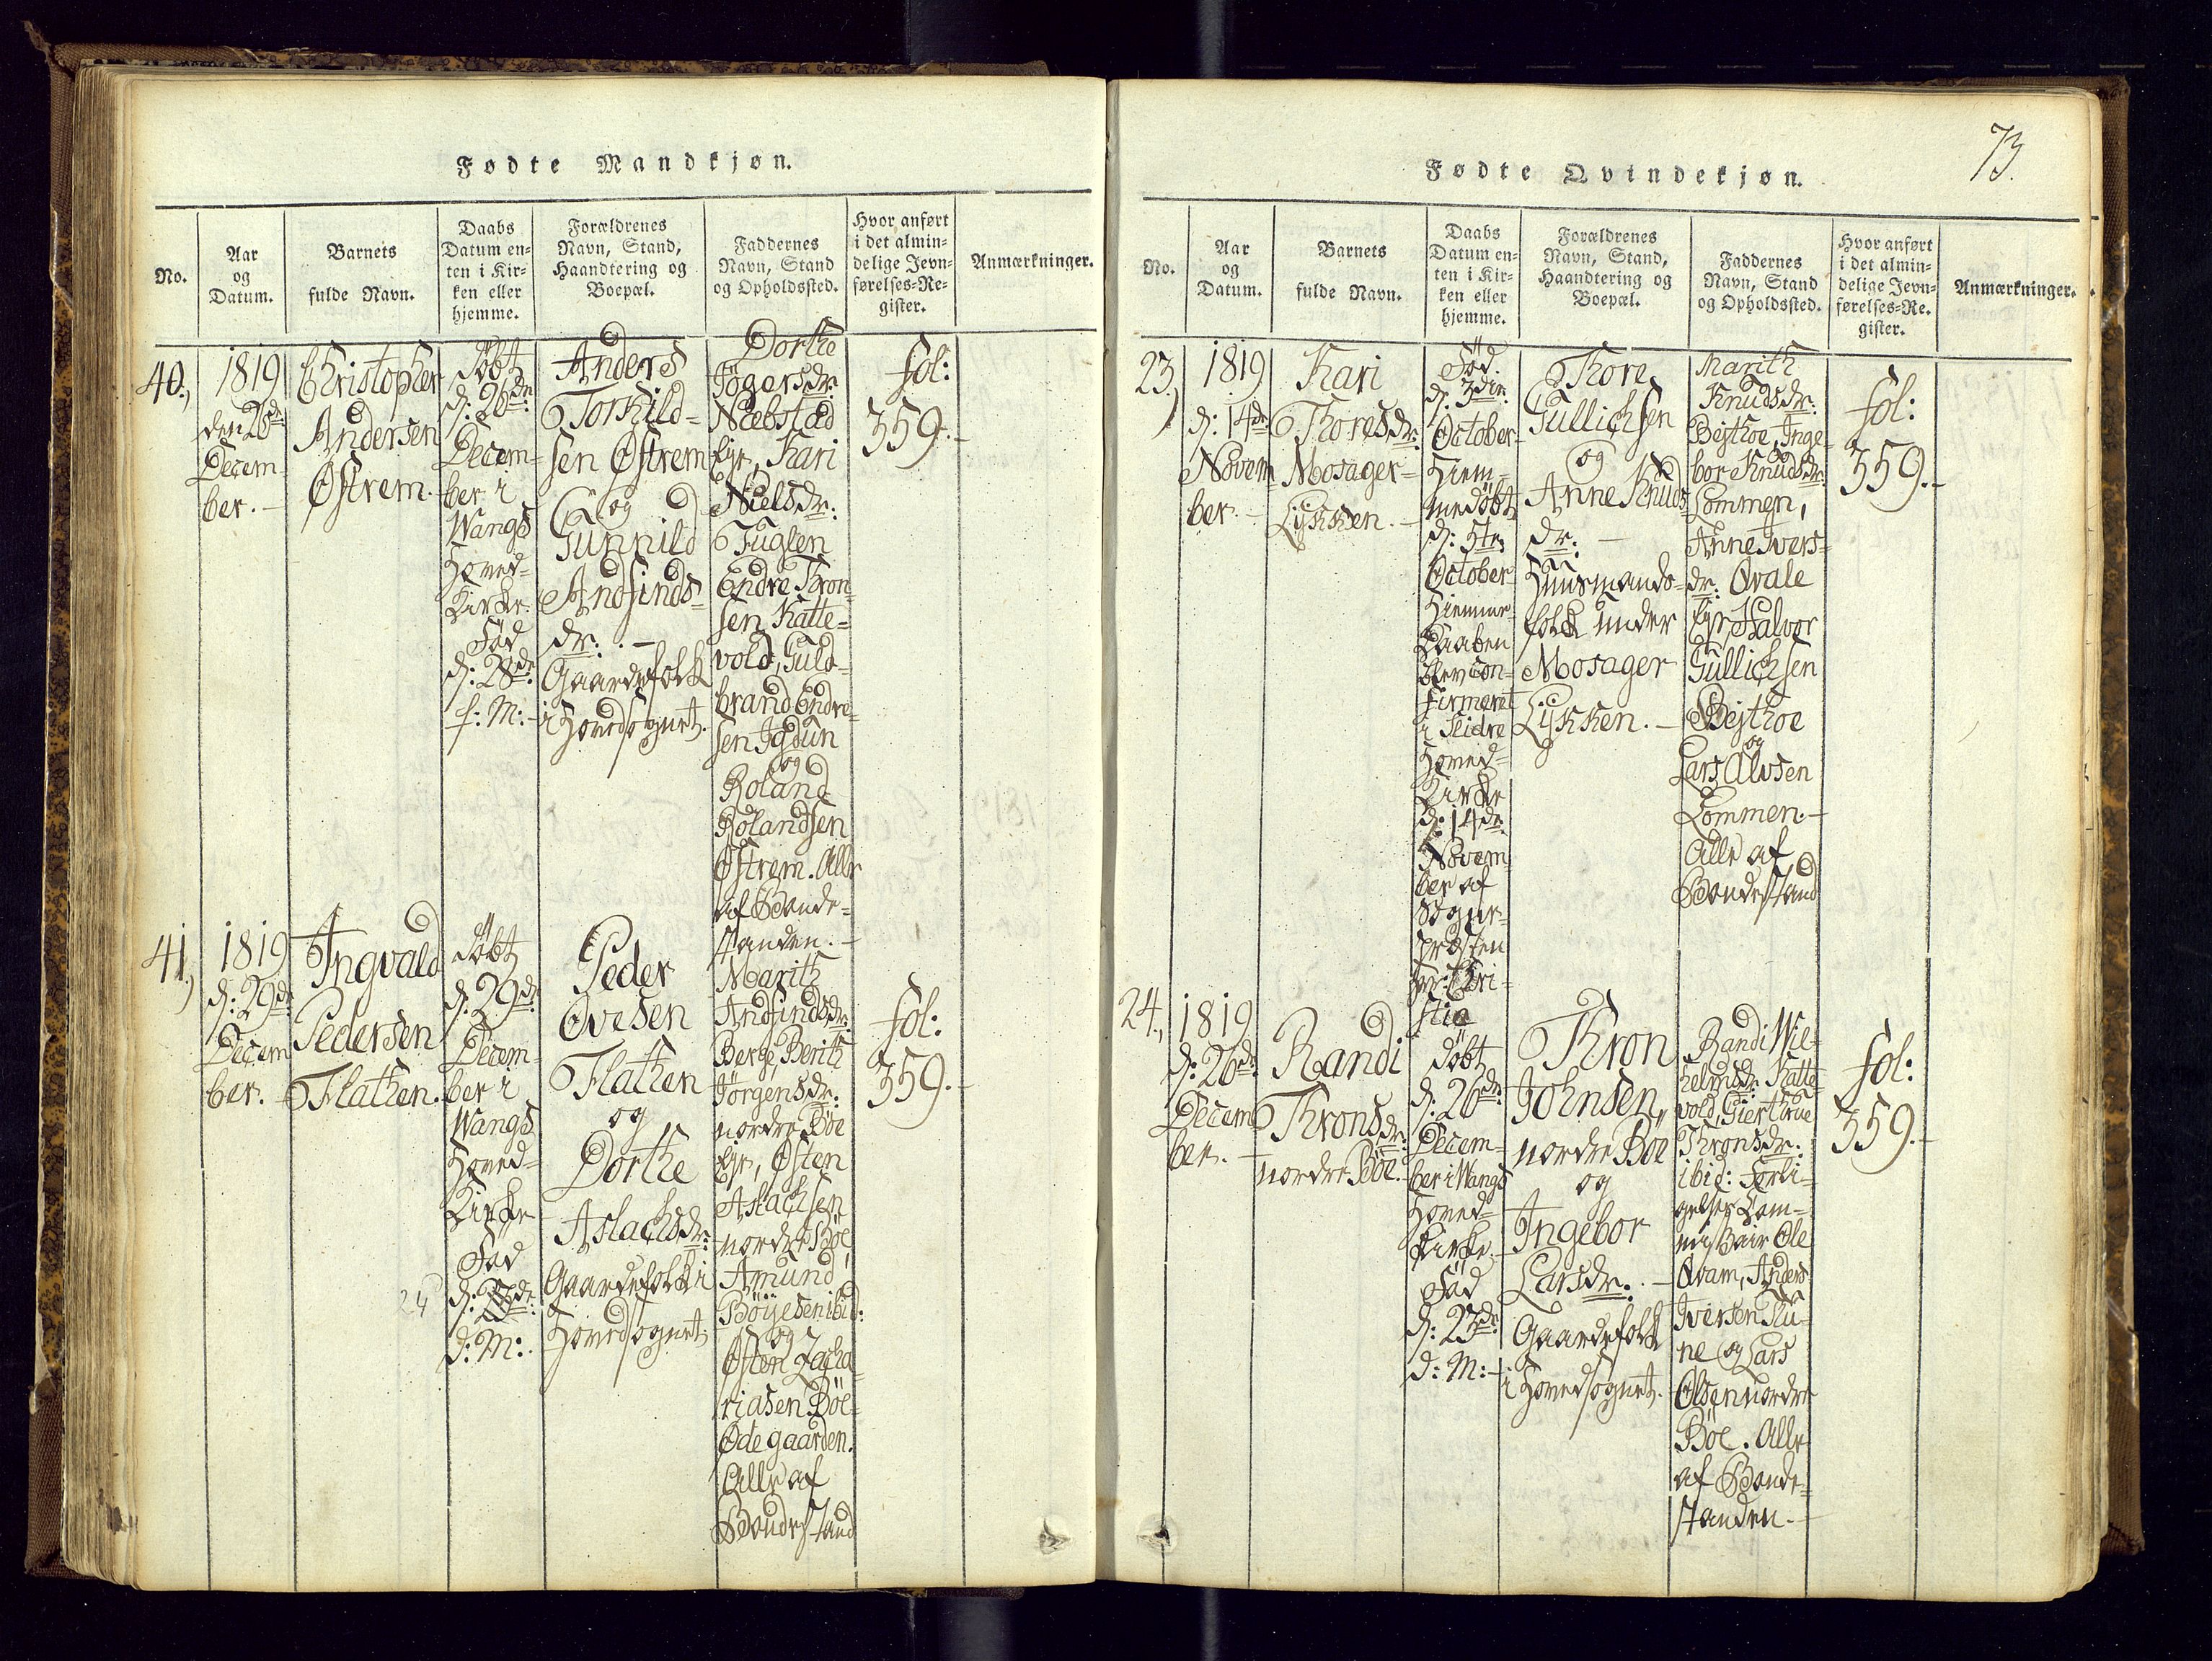 Fødte Mandkjøn.
No.
Aar
og
Datum.
Barnets
fulde Navn.
Daabs
Datum en=
ten i Kir=
ken eller
hjemme.
Forældrenes
Navn, Stand,
Haandtering og
Boepæl.
Faddernes
Navn, Stand
og Opholdssted.
Hvor anført
i det almin=
delige Jevn=
førelses=Re=
gister.
Anmærkninger.
40.,
1819
den 26de
Decem
ber. -
Christopher
Andersen
Østrem.
Döbt
d: 26de
Decem=
ber i
Wangs
Hoved=
Kirke.
Föd
d: 28de
f: M:
Anders
Torkild=
sen Østrem
og
Gunnild
Andfinds=
dr: . -
Gaardefolk
i Hovedsognet.
Dorthe
Nœbstad
Eje, Kari
Nielsdr:
Fuglen
Endre Thron=
sen Katte=
vold, Guld=
brand Endre=
sen Igdun
og
Roland
Rolandsen
Østrem. Alle
af Bonde=
standen. -
fol:
359. -
41.,
1819
d: 29de
Decem
ber. -
Ingvald
Pedersen
Flathen.
Döbt
d: 29de
Decem=
ber i
Wangs
Hoved=
Kirke
Föd
24
d:
d: M:
Peder
Ovesen
Flathen
og
Dorthe
Aslachsdr:
Gaardefolk i
Hovedsognet
Marith
Andfindsdr:
Berge, Berith
Jörgensdr:
nordre Böe
Eje, Østen
Aslachsen
nordre Böe,
Amund
Böyesen ibid:
og
Østen Zacha=
riasen Böe=
Ødegaarden.
Alle af
Bondestand
fol:
359. -
73.
Fødte Qvindekjøn.
No.
Aar
og
Datum.
Barnets
fulde Navn.
Daabs
Datum en=
ten i Kir=
ken eller
hjemme.
Forældrenes
Navn, Stand,
Haandtering og
Boepæl.
Faddernes
Navn, Stand
og Opholdssted.
Hvor anført
i det almin=
delige Jevn=
førelses=Re=
gister.
Anmærkninger.
23.,
1819
d: 14de
Novem
ber. -
Kari
Thoresdr:
Mosager=
Lykken. -
Föd.
d. 3die
October
Hiem=
medöbt
d: 5te
October
Hiemme
Daaben
blev con=
firmeret
i Slidre
Hoved=
Kirke
d: 14de
Novem
ber af
Sogne=
Præsten
Hr: Chri=
stie
Thore
Gullichsen
og
Anne Knuds
dr: -
Huusmands=
folk under
Mosager
Lykken. -
Marith
Knudsdr:
Bejthoe, Inge=
bor Knudsdr:
Lommen,
Anne Ivers=
dr: Qvale
Eje, Halvor
Gullichsen
Bejthoe
og
Lars Alvsen
Lommen. -
Alle af
Bondestand
fol:
359. -
24.,
1819
d: 26de
Decem
ber. -
Randi
Thronsdr:
nordre Böe.
Döbt
d: 26de
Decem=
ber i Wangs
Hoved=
Kirke.
Föd
d: 23de
d: M: -
Thron
Johnsen,
nordre Böe
og
Ingebor
Larsdr: . -
Gaardefolk
i Hovedsognet.
Randi Wil=
helmsdr: Katte=
vold, Gierthrue
Thronsdr:
ibid: Forli=
gelses Com=
missair Ole
Qvam, Anders
Iversen Ru=
ne og Lars
Olsen nordre
Böe. Alle
af Bonde=
standen. -
fol:
359. -